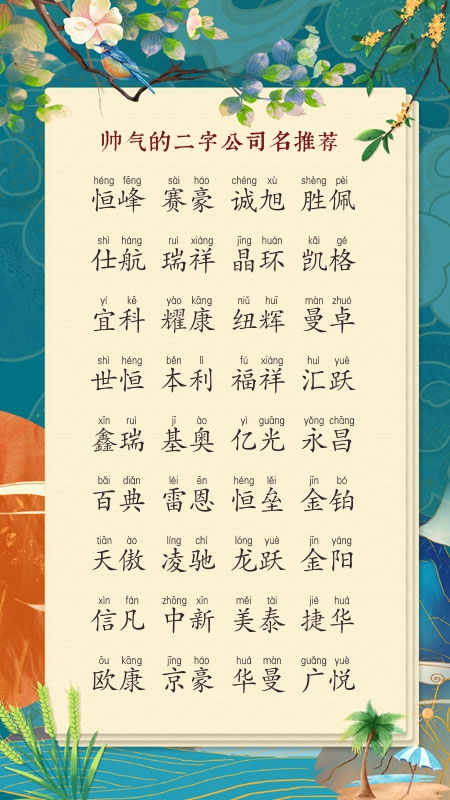 帅气的二字公司名推荐
héng fēng sài háo chéng xù shèng pèi
恒峰 赛豪 诚旭 胜佩
shì háng ruì xiáng jīng huán kǎi gé
仕航 瑞祥 晶环 凯格
yí kē yào kāng niǔ huī màn zhuó
宜科 耀康 纽辉 曼卓
shì héng běn lì fú xiáng huì yuè
世恒 本利 福祥 汇跃
xīn ruì jī ào yì guāng yǒng chāng
鑫瑞 基奥 亿光 永昌
bǎi diǎn léi ēn héng lěi jīn bó
百典 雷恩 恒垒 金铂
tiān ào líng chí lóng yuè jīn yáng
天傲 凌驰 龙跃 金阳
xìn fán zhōng xīn měi tài jié huá
信凡 中新 美泰 捷华
ōu kāng jīng háo huá màn guǎng yuè
欧康 京豪 华曼 广悦